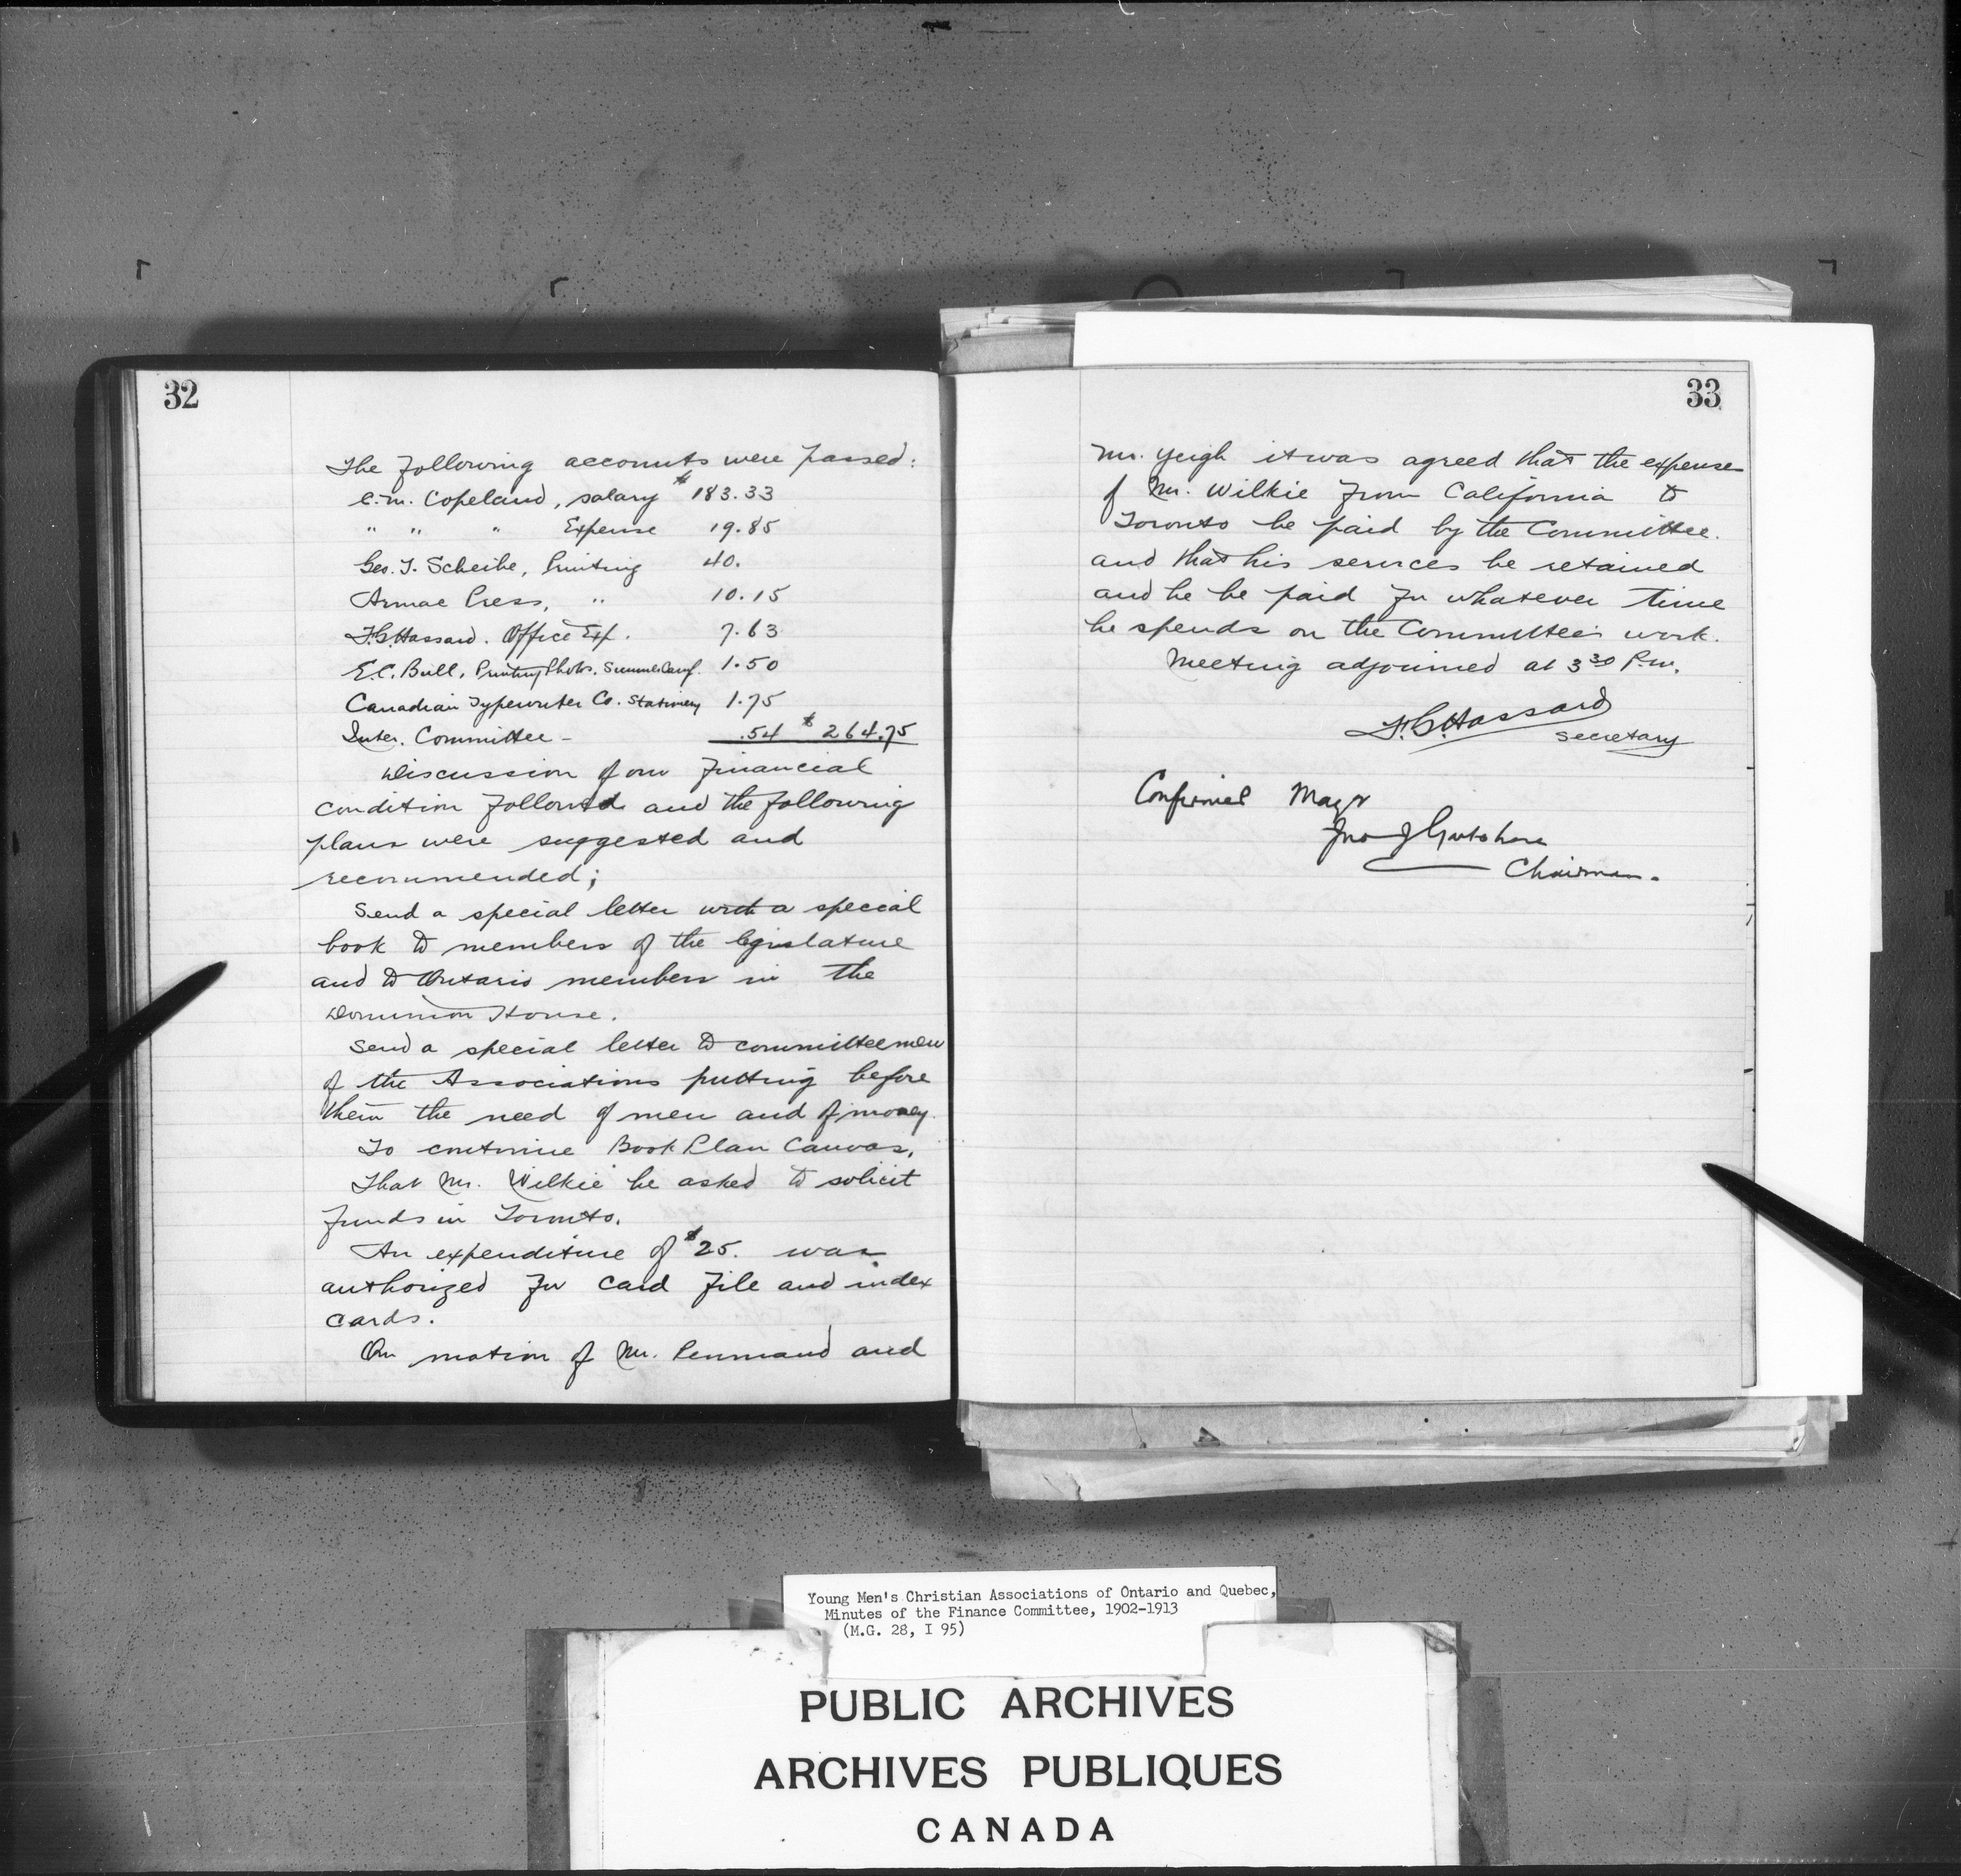 32
The following accounts were passed:
C.M. Copeland, salary $183.33
" " " Expense 19.85
Geo. T. Scheibe, Printing 40.
Armac Press, " 10.15
F.G. Hassard. Office Exp. 7.63
E.C. Bull, Printing Photos. Summer Camp. 1.50
Canadian Typewriter Co. Stationery 1.75
Inter. Committee - .54 $264.75
Discussion of our financial
condition followed and the following
plans were suggested and
recommended;
Send a special letter with a special
book to members of the legislature
and to Ontario members in the
Dominion House.
Send a special letter to committeemen
of the Associations putting before
them the need of men and of money.
To continue Book Plan Canvas.
That Mr. Wilkie be asked to solicit
funds in Toronto.
An expenditure of $25. was
authorized for card file and index
cards.
On motion of Mr. Penmand and
33
Mr. Yeigh it was agreed that the expense
of Mr. Wilkie from California to
Toronto be paid by the Committee.
and that his services be retained
and he be paid for whatever time
he spends on the Committee's work.
Meeting adjourned at 3 30 P.M.
F.G. Hassard
Secretary
Confirmed May
Jno J
Chairman.
Young Men's Christian Associations of Ontario and Quebec,
Minutes of the Finance Committee, 1902-1913
(M.G. 28, I 95)
PUBLIC ARCHIVES
ARCHIVES PUBLIQUES
CANADA